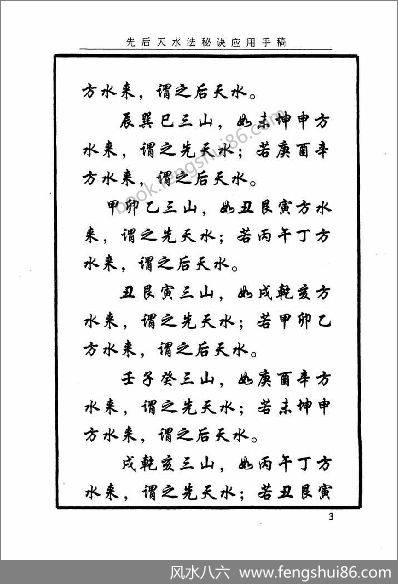 先后天水法秘诀应用手稿
方水来，谓之后天水。
辰巽巳三山，如未坤申方
水来，谓之先天水；若庚酉辛
方水来，谓之后天水。
甲卯乙三山，如丑艮寅方水
来，谓之先天水；若丙午丁方
水来，谓之后天水。
丑艮寅三山，如戌乾亥方
水来，谓之先天水；若甲卯乙
方水来，谓之后天水。
壬子癸三山，如庚酉辛方
水来，谓之先天水；若未坤申
方水来，谓之后天水。
戌乾亥三山，如丙午丁方
水来，谓之先天水；若丑艮寅
3
book.fengshui86.com
风水八六 - www.fengshui86.com